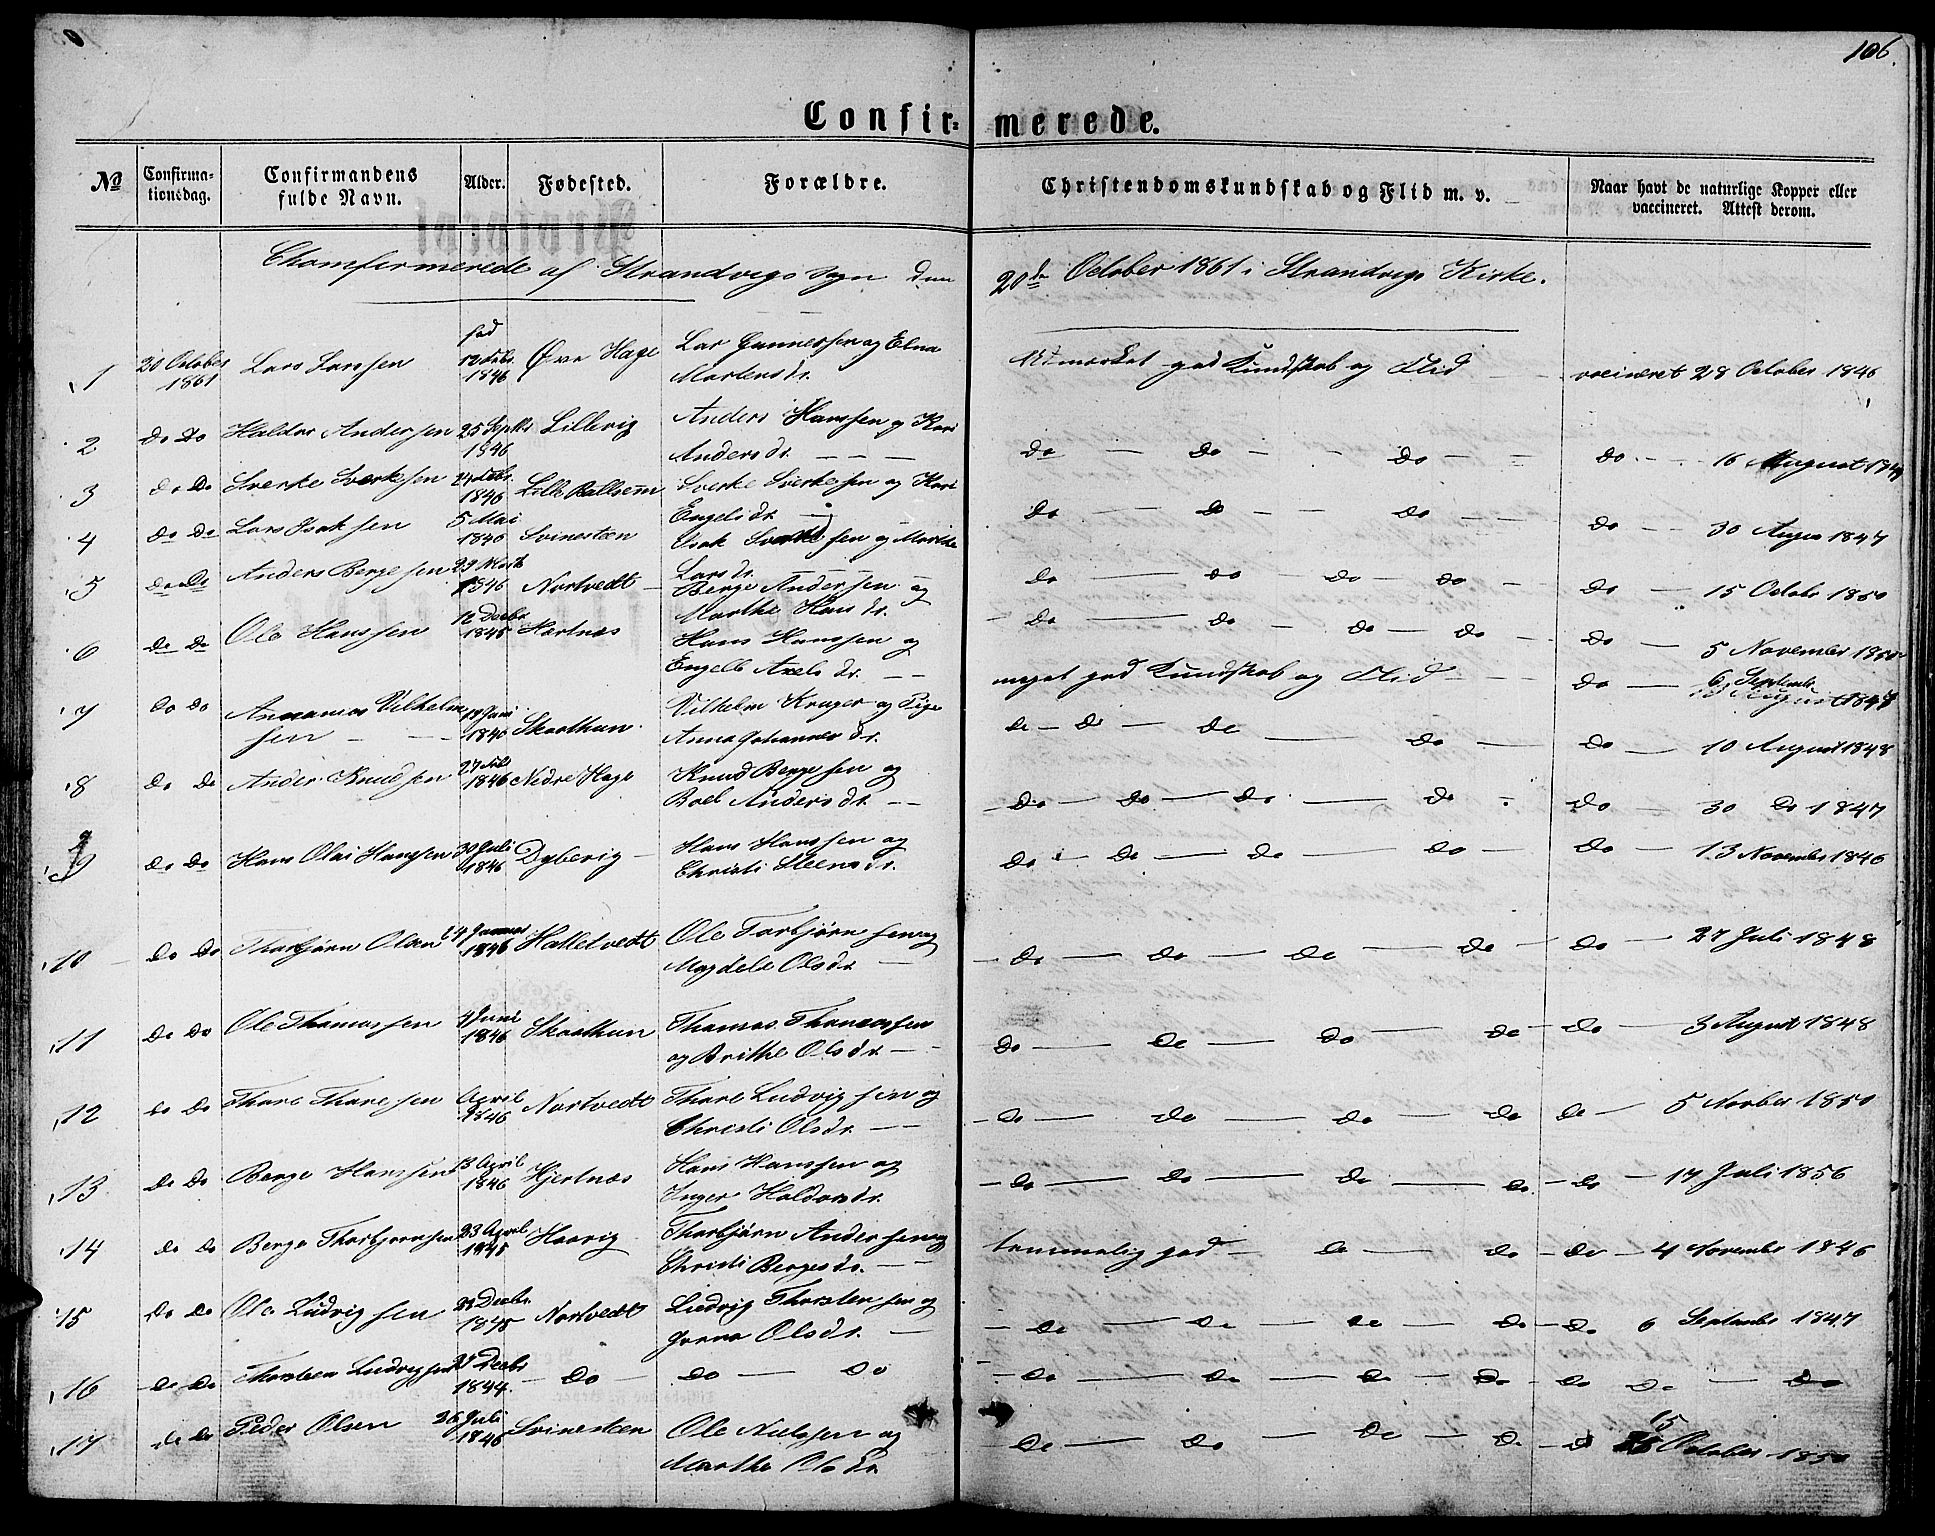 106.
Confir- merede.
No
Confirma-
tionsdag.
Confirmandens
fulde Navn.
Alder.
Fødested.
Forældre.
Christendomskundskab og Flid m. v.
Naar havt de naturlige Kopper eller
vaccineret. Attest derom.
Chomfirmerede af Strandvigs Sogn den 20de October 1861 i Strandvigs Kirke.
1 20 October 1861 Lars Larsen fød 12 1846 Øvre Hage Lar Gunnersen og Elna Martensdr. Udmærket god Kundskab og Flid vacineret 28 October 1846
2 do do Haldor Andersen 25 Septbr 1846 Lillevig Anders Hanssen og Kari Andersdr. do do do do 16 August
3 do do Sverke Sverkesen 1846 Lille Sverke Sverkesen og Kari Engelsdr. do do do do 30 Augus 1847
4 do do Lars Isaksen 5 Mai Svinesteen Isak sen og Marthe Larsdr. do do do do do 15 Octobr 1850
5 do do Anders Bergesen 29 1846 Nortvedt Berge Andersen og Marthe Hansdr. do do do do do 5 November 1850
6 do do Ole Hanssen 12 Decbr 1845 Hans Hanssen og Engelb Axelsdr. meget god Kundskab og Flid do 6 Septembr 1847
7 do do Vilhelmsen Juni Skaathun Vilhelm Kruger og Pige Anna Johannesdr. do do do do do 10 August 1848
8 do do Anders Knudsen 27 1846 Nedre Hage Knud Bergesen og Boel Andersdr. do do do do do 30 do 1847
9 do do Hans Olai Hanssen 30 Juli 1846 Dybevig Hans Hanssen og Christi Steensdr. do do do do do 13 November 1846
10 do do Thorbjørn Olsen 1846 Halletvedt Ole Torbjørnsen og Magdele Olsdr. do do do do do 27 Juli 1848
11 do do Ole Thomassen Juni 1846 Skaathun Thomas Thomassen og Brithe Olsdr. do do do do do 3 August 1848
12 do do Thore Thoresen April 1846 Nortvedt Thore Ludvigsen og Christi Olsdr. do do do do do 5 Novber 1850
13 do do Berge Hanssen 13 April 1846 Hjertnæs Hans Hanssen og Inger Haldorsdr. do do do do do 17 Juli 1856
14 do do Berge Thorbjørnsen 23 April 1845 Haavig Thorbjørn Andersen og Christi Bergesdr. temmelig god do do do 4 November 1846
15 do do Ole Ludvigsen Decbr. 1845 Nortvedt Ludvig Thorstensen og Olsdr. do do do do do 6 Septembr 1847
16 do do Thorsten Ludvigsen Decbr 1844. do do do do do do do do do do
17 do do Peder Olsen 26 Juli 1846 Svinesteen Ole Nielssen og Marthe Olsdr. do do do do do 15 October 1850